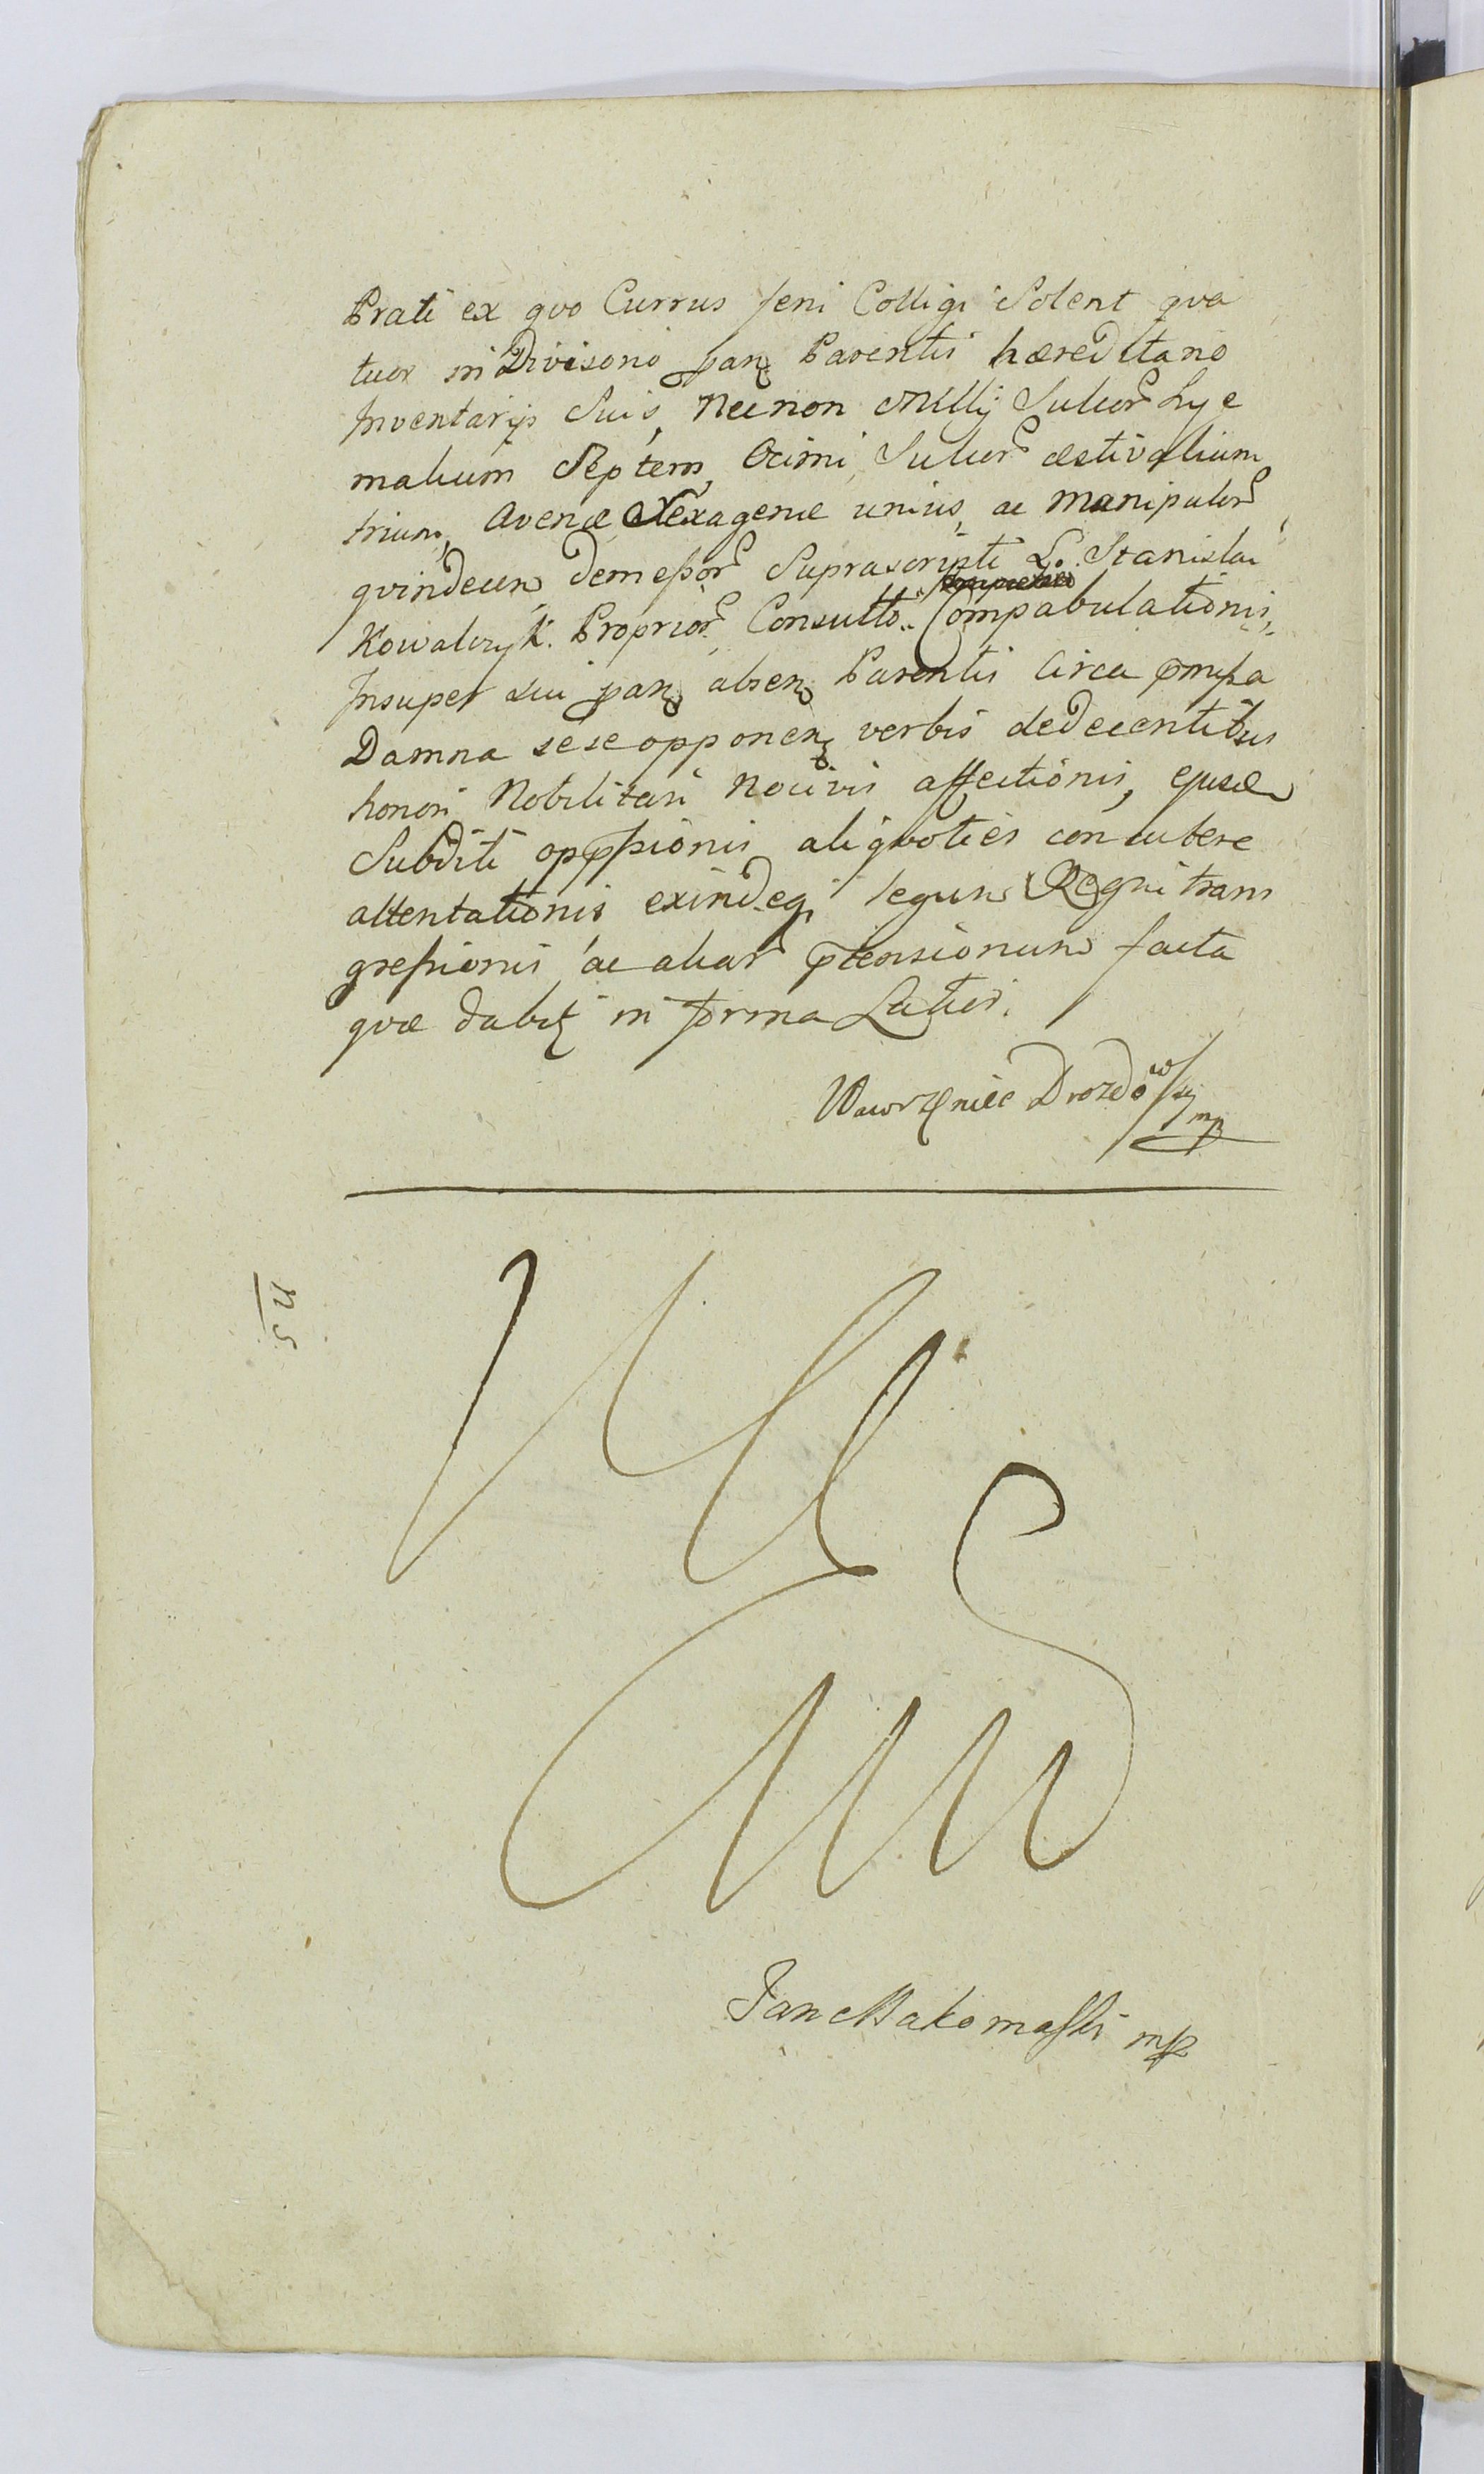 Prati ex qvo Currus feni Colligi Solent qva
tuor in Divisorio Parentis hæreditario
Inventarijs Suis, Necnon Milly Sulcor Hye
malium Septem, Ocimi Sulcor æstivalium
trium, Avenæ Sexagenæ unius, ac Manipulor
qvindecem demessor Suprascripti L. Stanislai
Kowalczyk. Proprior Consulto Compabulationis,
Insuper sui absen Parentis Circa pmissa
Damna sese opponen verbis dedecentibus
honori Nobilitari nocivis affectionis, ejusdem
Subditi oppssionis aliqvoties concutere
attentationis exindeq legum Regni trans
gressionis ac aliar ptensionum facta
qvæ dabit in forma Latiori.
Wawrzeniec Drozdowski mp
NS
Jan Makomaski mp